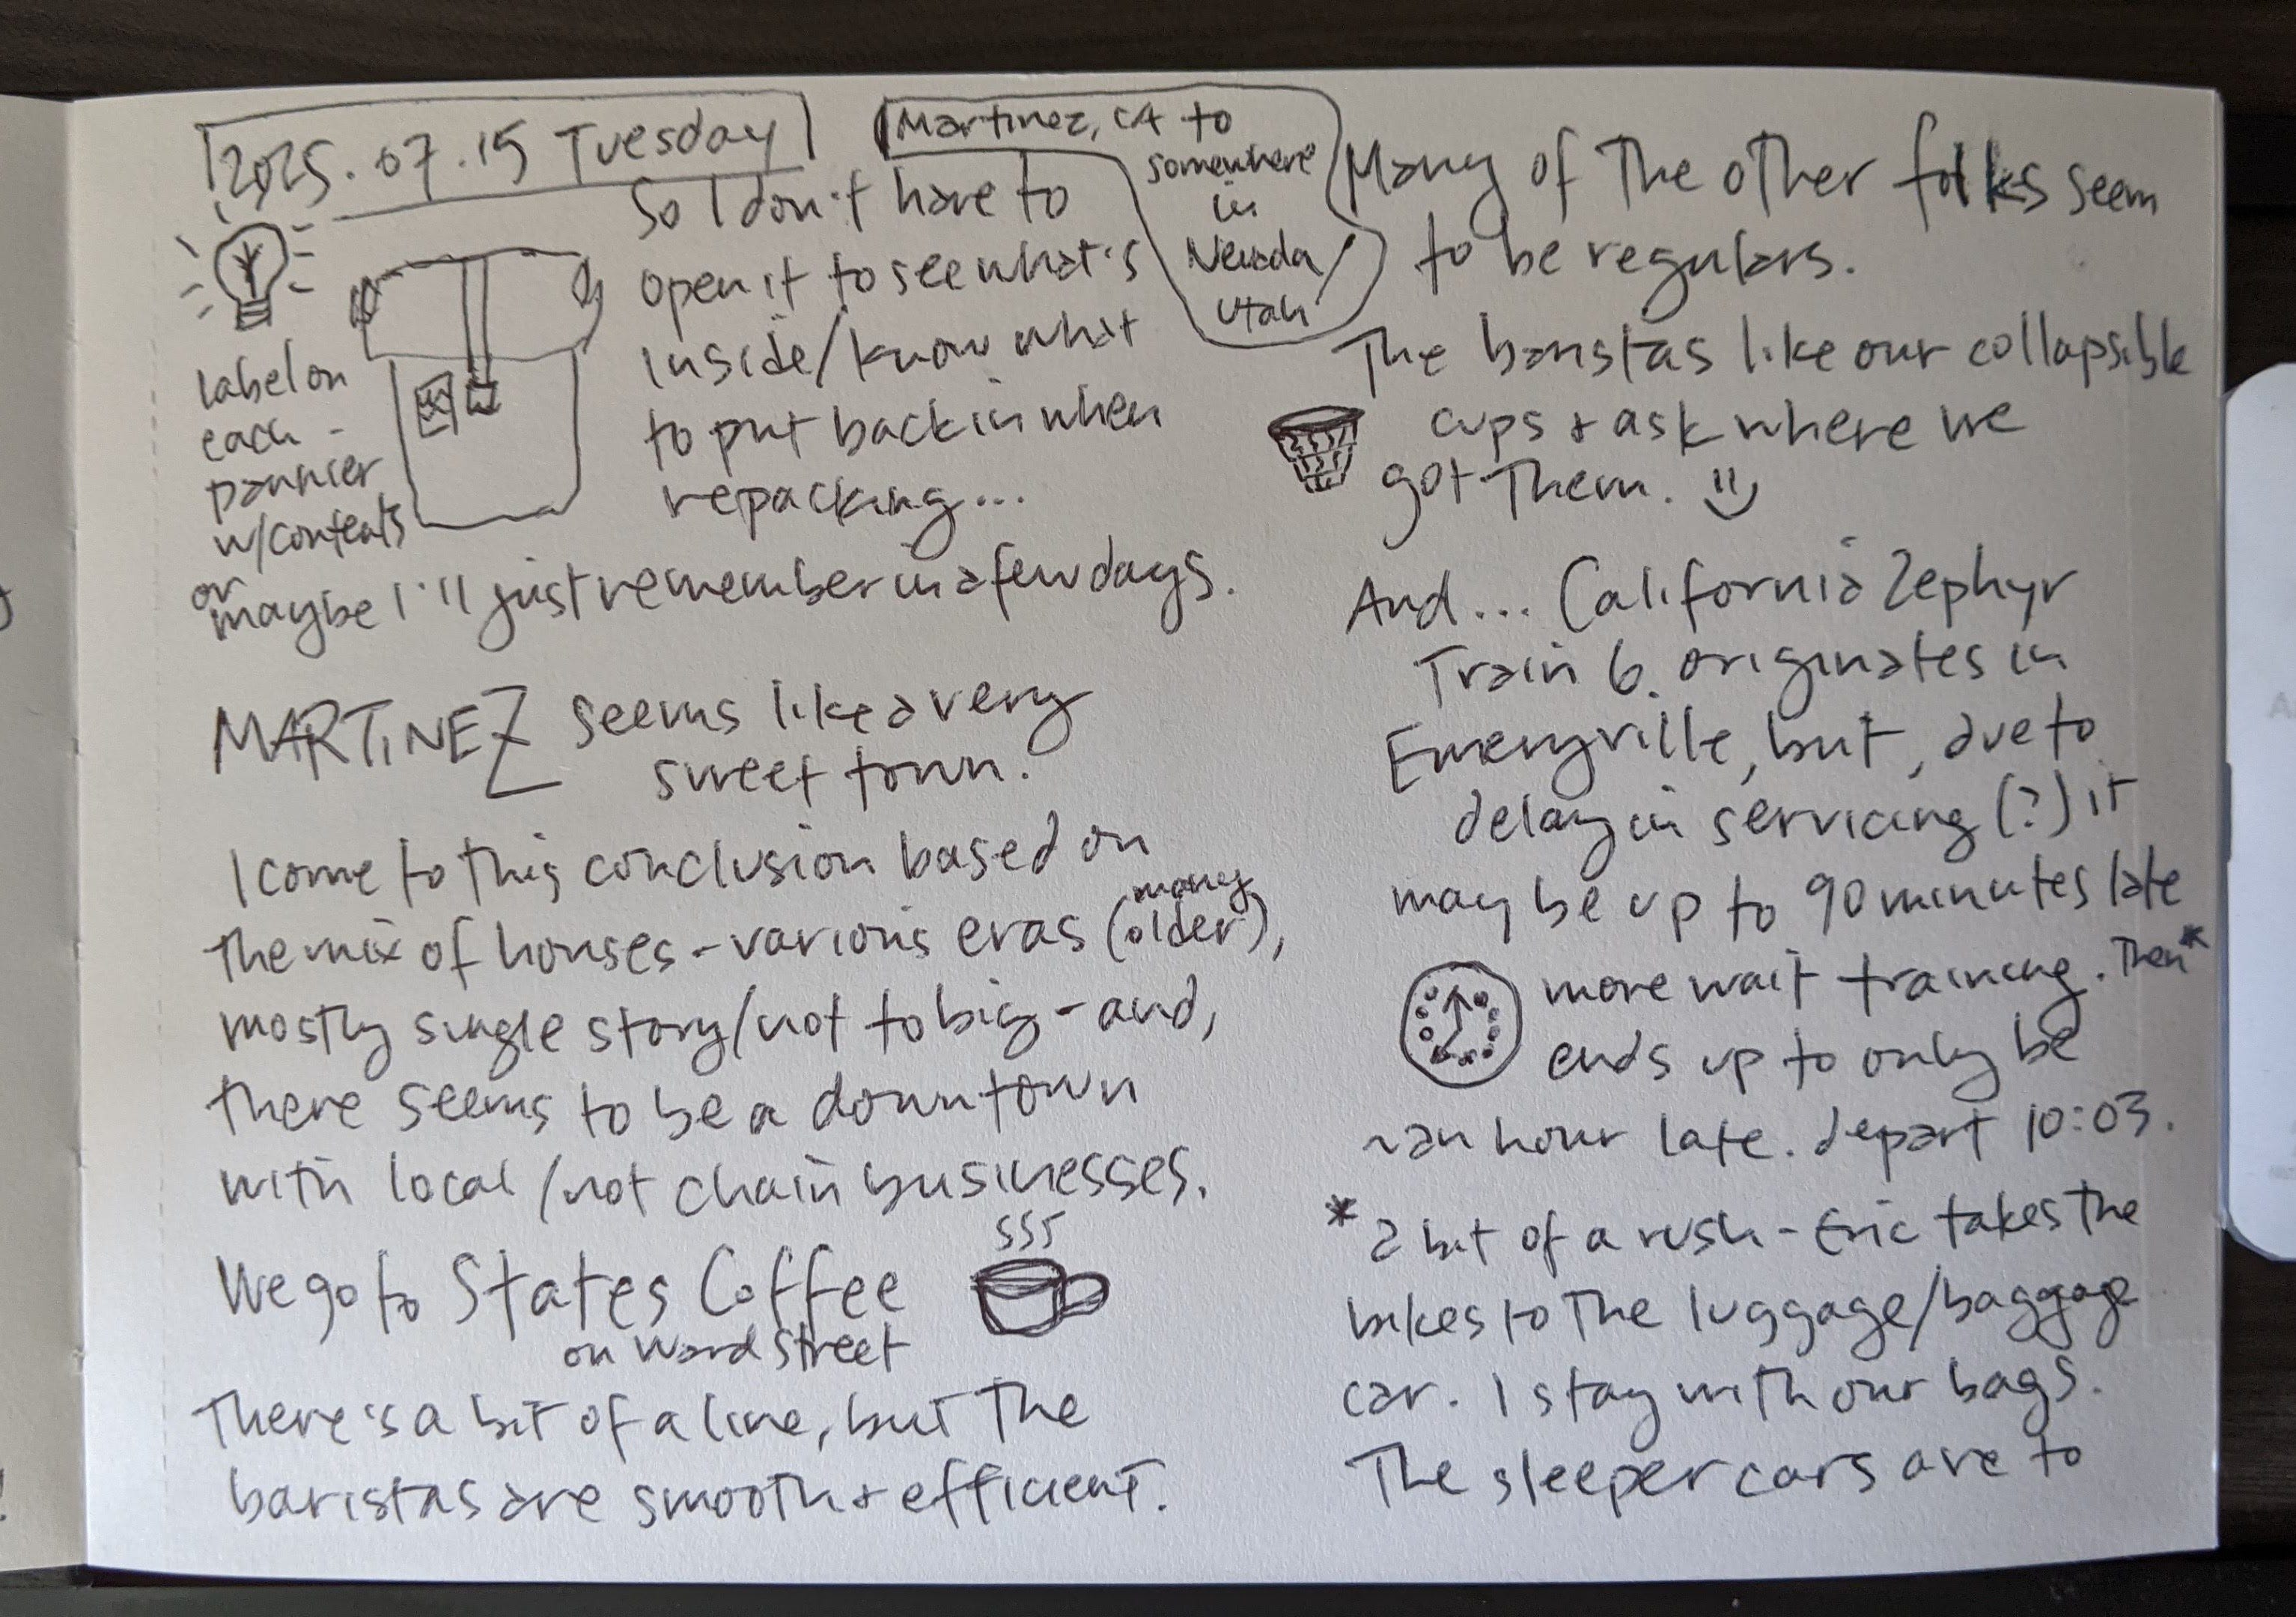 2025.07.15 Tuesday
Martinez, CA to
somewhere
in
Nevada/
Utah
label on
each
pannier
w/contents
So I don't have to
open it to see what's
inside/know what
to put back in when
repacking...
or
maybe I'll just remember in a few days.
MARTINEZ seems like a very
sweet town.
I come to this conclusion based on
many
the mix of houses - various eras (older),
mostly single story/not to big - and,
there seems to be a downtown
with local/not chain businesses.
We go to States Coffee
on Ward Street
There's a bit of a line, but the
baristas are smooth + efficient.
Many of the other folks seem
to be regulars.
The baristas like our collapsible
cups + ask where we
got them.
And... California Zephyr
Train 6. originates in
Emeryville, but, due to
delay in servicing (?) it
may be up to 90 minutes late
more wait training. Then*
ends up to only be
~an hour late. depart 10:03.
* a bit of a rush - Eric takes the
bikes to the luggage/baggage
car. I stay with our bags.
The sleeper cars are to